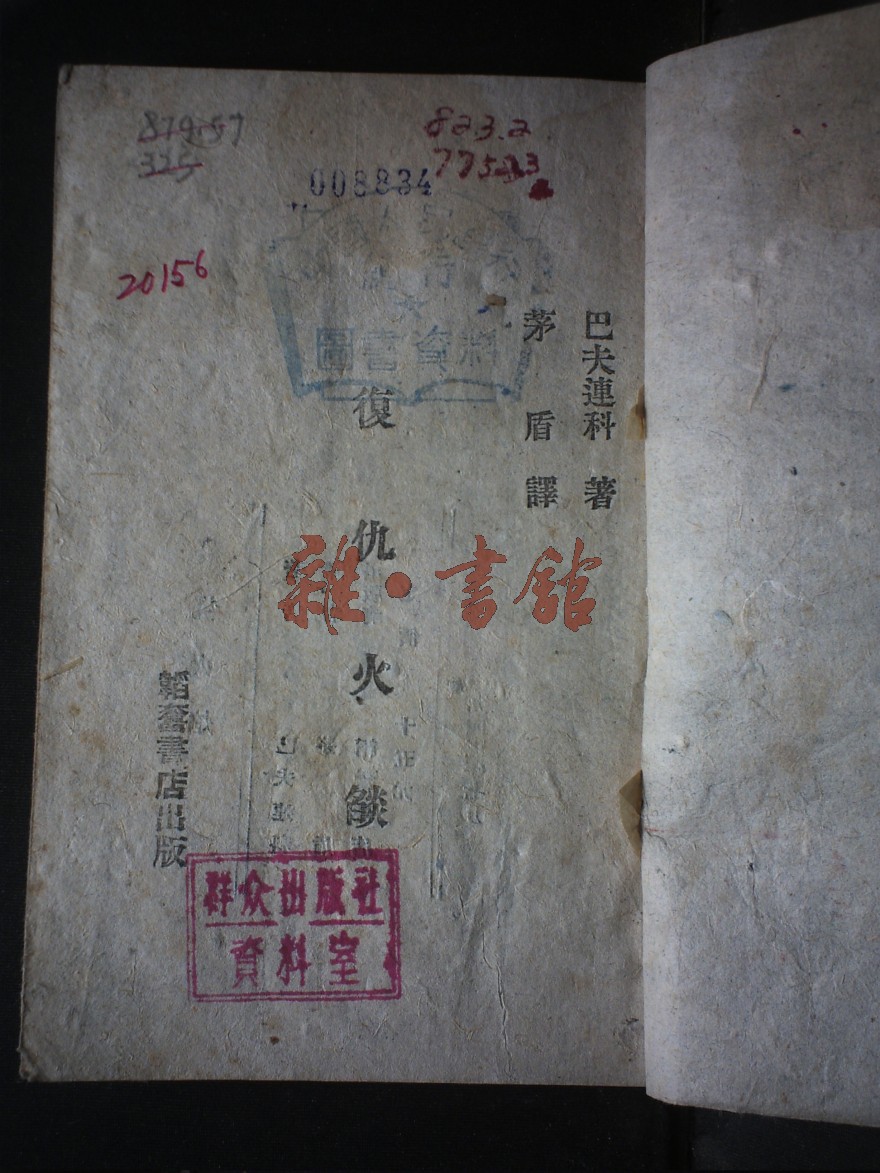 879.57
325
823.2
008834
20156
圖書資料
巴夫連科 著
茅盾 譯
復仇火燄
韜奮書店出版
雜·書館
群众出版社
資料室